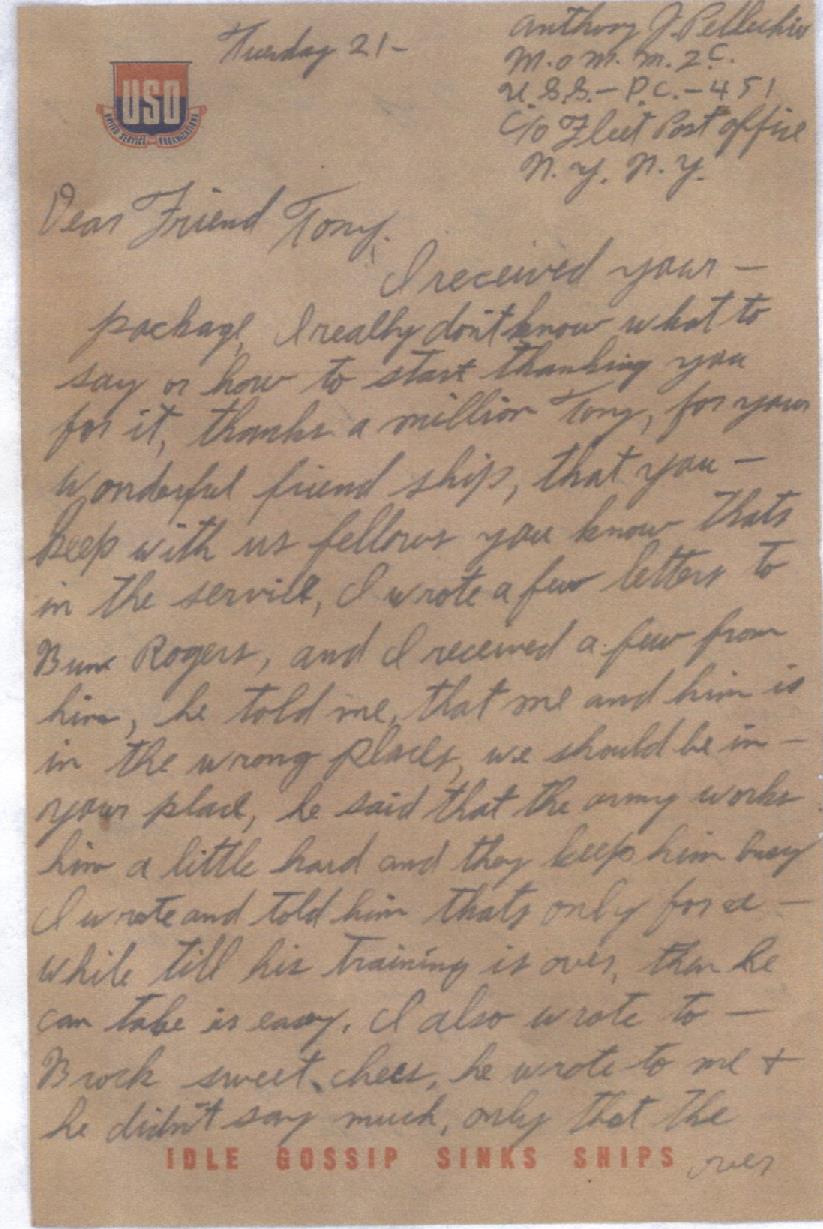 Tuesday 21-
Anthony J. Pellechio
M.o.M.M. 2C.
U.S.S.-P.C.-451
C/o Fleet Post office
N.Y. N.Y.
USO
UNITED SERVICE ORGANIZATIONS
Dear Friend Tony,
I received your-
package, I really don't know what to
say or how to start thanking you
for it, thanks a million Tony, for your
wonderful friend ship, that you-
keep with us fellows you know thats
in the service, I wrote a few letters to
Rogers, and I received a few from
him, he told me, that me and him is
in the wrong places, we should be in-
your place, he said that the army works
him a little hard and they keep him busy
I wrote and told him thats only for a-
while till his training is over, then he
can take is easy. I also wrote to-
Brock sweet he wrote to me +
he didn't say much, only that the
over
IDLE GOSSIP SINKS SHIPS